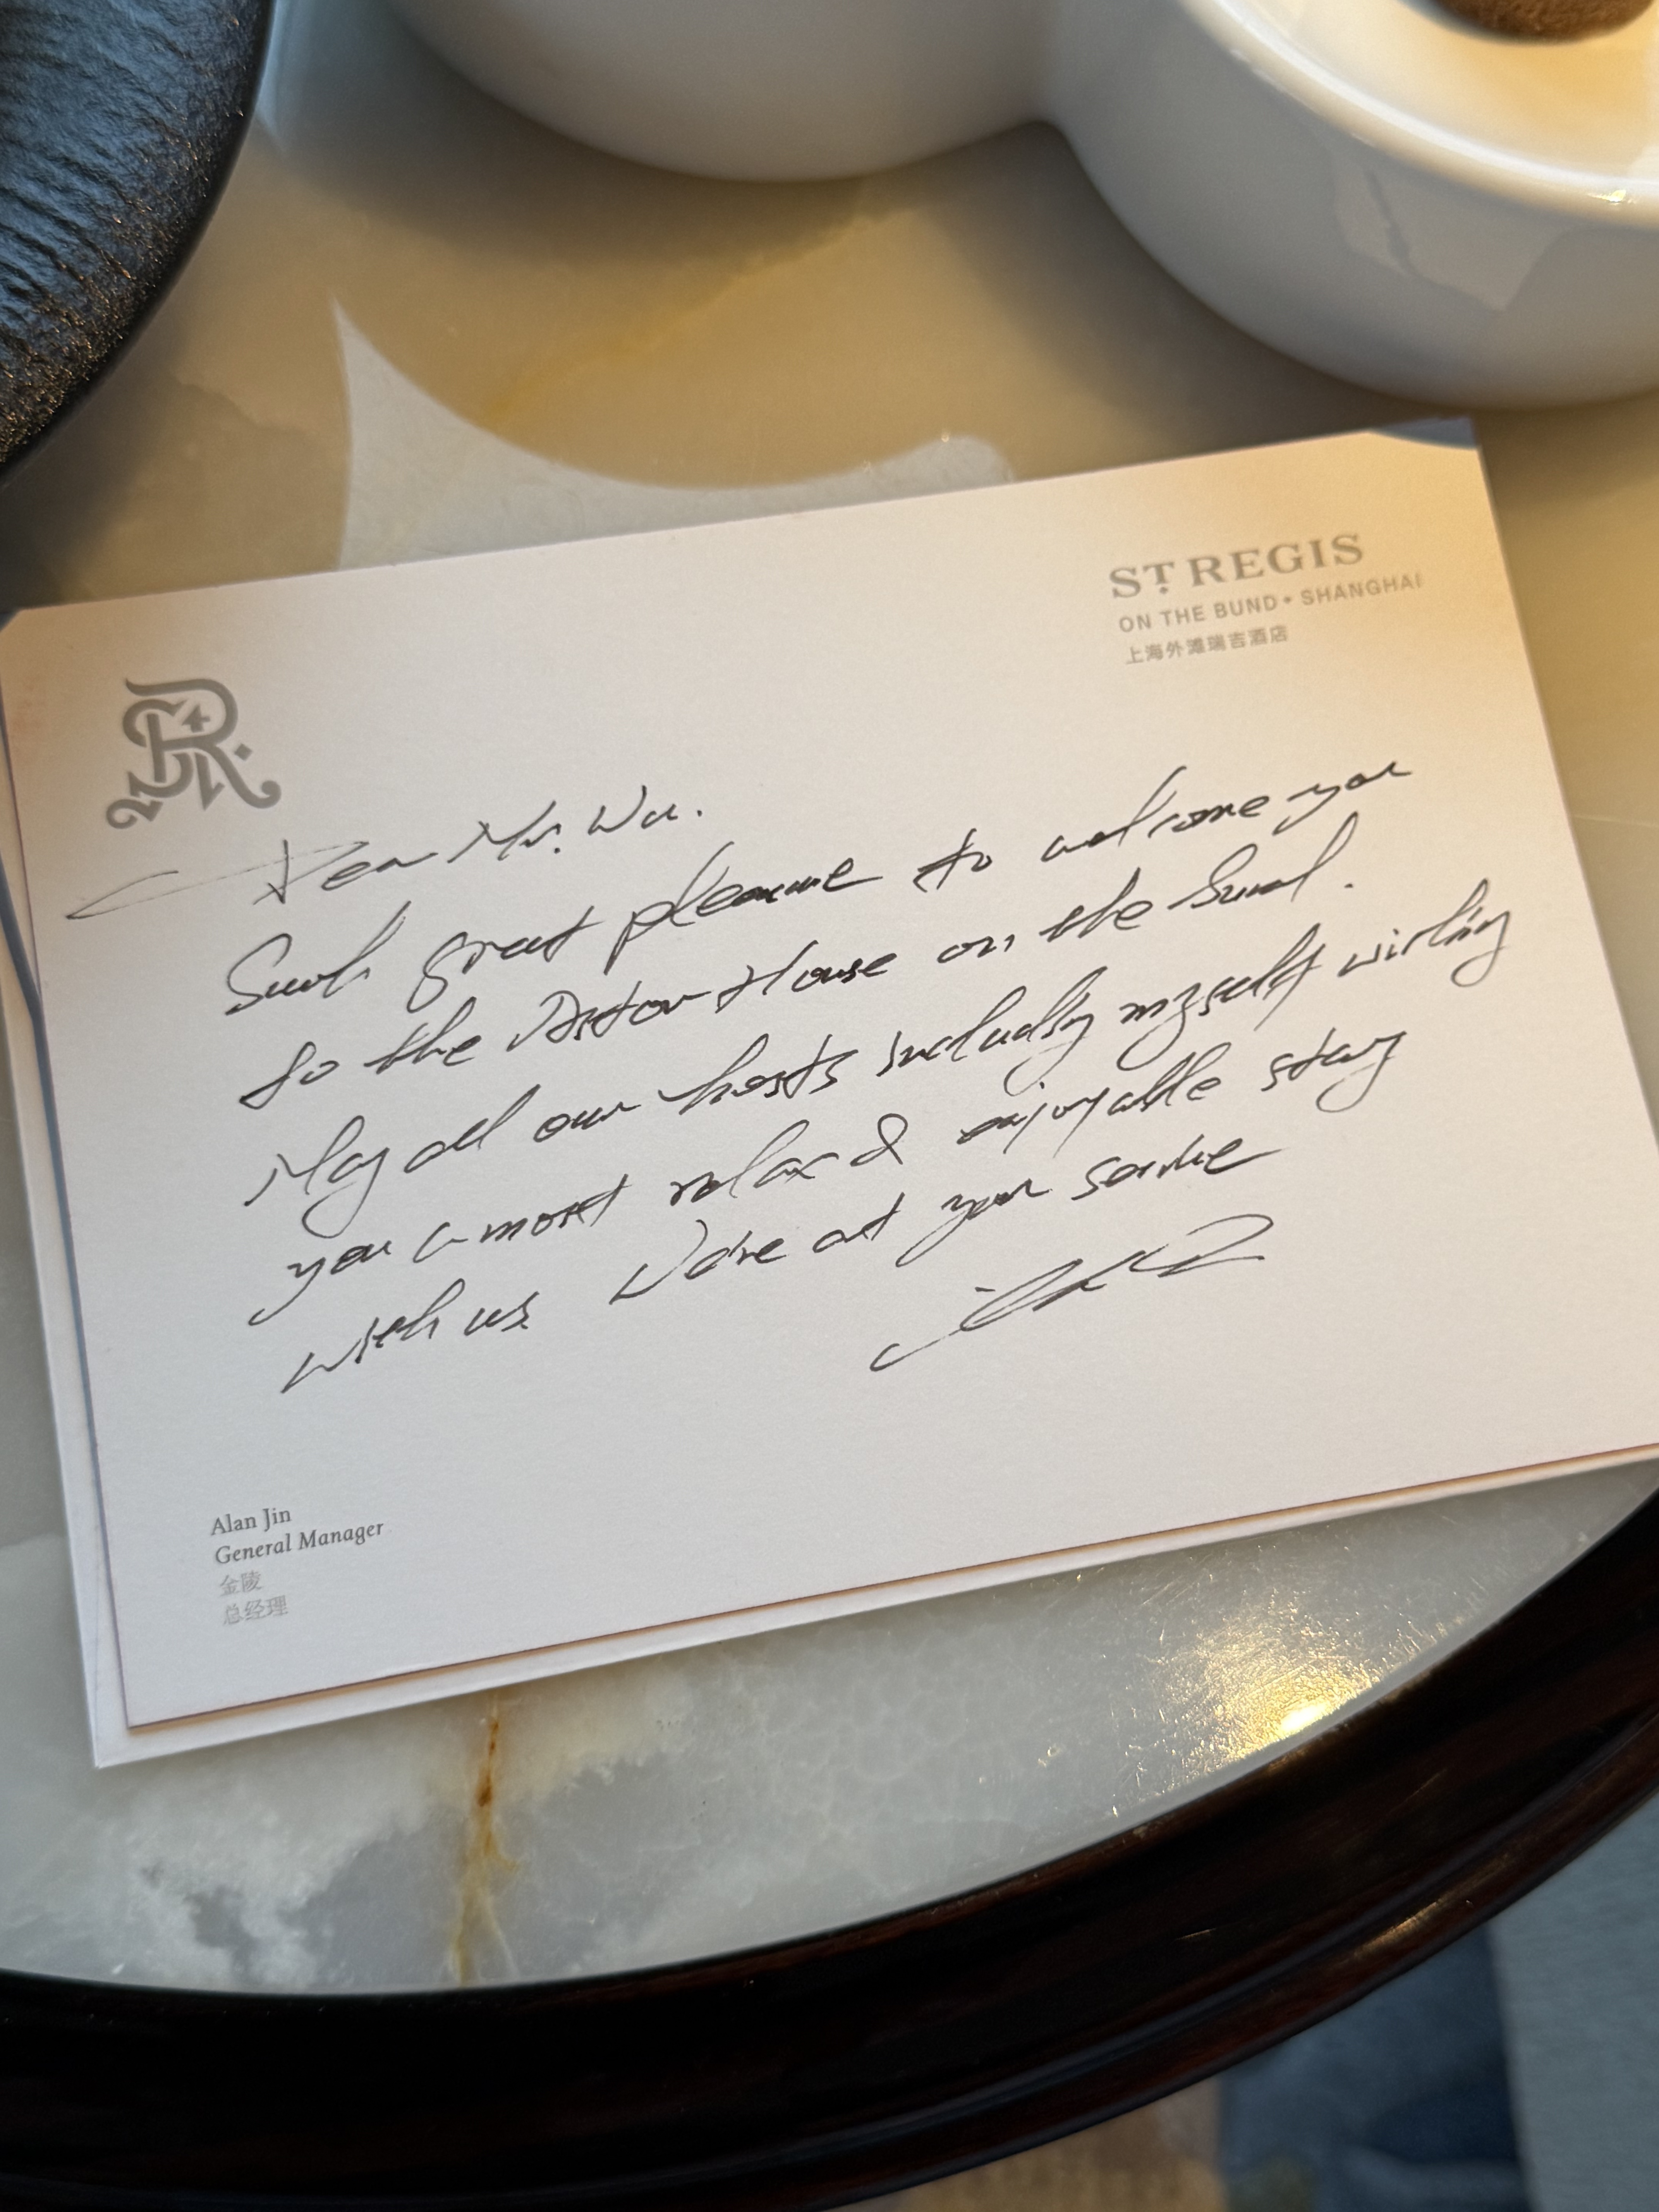 ST. REGIS
ON THE BUND • SHANGHAI
上海外滩瑞吉酒店
Dear Mr. Wu.
Such great pleasure to welcome you
to the Astor House on the Bund.
May all our hosts including myself wishing
you a most relax & enjoyable stay
with us. We're at your service
Alan Jin
General Manager
金陵
总经理